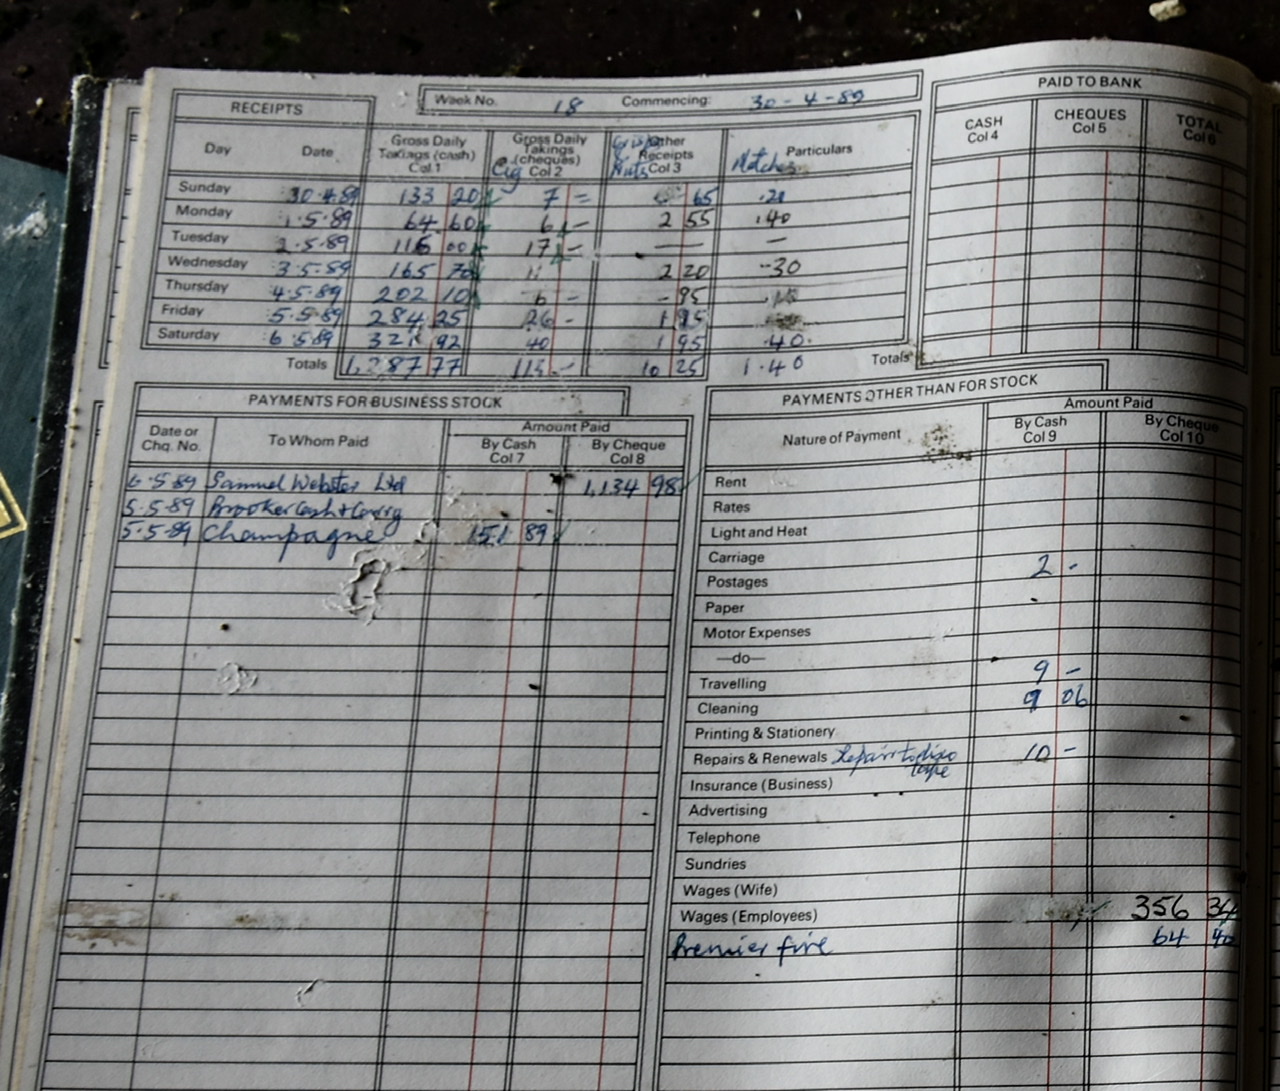 RECEIPTS
Week No. 18 Commencing: 30-4-89
Day Date Gross Daily Takings (cash) Col 1 Gross Daily Takings (cheques) Col 2 Cig Other Receipts Col 3 Crisps Nuts Particulars Matches
Sunday 30.4.89 133 20 7 = 65 .20
Monday 1.5.89 64 60 6 - 2 55 .40
Tuesday 2.5.89 116 00 17 - — —
Wednesday 3.5.89 165 70 11 2 20 -30
Thursday 4.5.89 202 10 6 - - 95
Friday 5.5.89 284 25 26 - 1 95
Saturday 6.5.89 321 92 40 1 95 .40.
Totals 1,287 77 113 - 10 25 1.40
PAID TO BANK
CASH Col 4 CHEQUES Col 5 TOTAL Col 6
Totals
PAYMENTS FOR BUSINESS STOCK
Date or Chq. No. To Whom Paid Amount Paid
By Cash Col 7 By Cheque Col 8
6.5.89 Samuel Webster Ltd 1,134 98
5.5.89 Brooker Cash & Carry
5.5.89 Champagne 151 89
PAYMENTS OTHER THAN FOR STOCK
Nature of Payment Amount Paid
By Cash Col 9 By Cheque Col 10
Rent
Rates
Light and Heat
Carriage
Postages 2 -
Paper
Motor Expenses
—do—
Travelling 9 -
Cleaning 9 06
Printing & Stationery
Repairs & Renewals Repair to disco tape 10 -
Insurance (Business)
Advertising
Telephone
Sundries
Wages (Wife)
Wages (Employees) 356 34
Premier fire 64 40